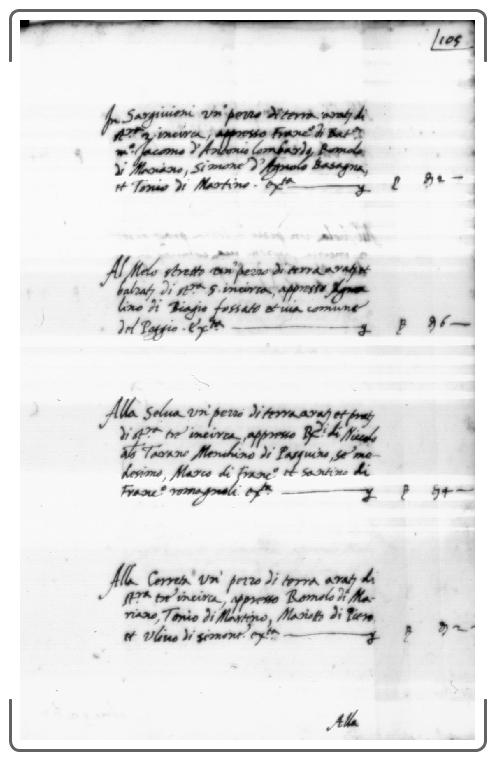 105
In Sargivioni un' pezzo di terra arat.ª di
st.ra 2 incirca, appresso Franc.º di Bat.ª
m.º Jacomo d'Antonio Lombardo, Romolo
di Mariano, Simone d'Agnolo Basagna,
et Tonio di Martino. ex.ta
2 —
Al Melo stretto un' pezzo di terra arat.ª et
balzat.ª di st.ra 5. incirca, appresso Agno=
lino di Biagio fossato et via comune
del Poggio. ex.ta
6 —
Alla Selva un' pezzo di terra arat.ª et prat.ª
di st.ra tre incirca, appresso di Niccolo
als Menchino di Pasquino, se me=
desimo, Marco di Franc.º et Santino di
Franc.º romagnoli. ex.ta
4 —
Alla Correta un' pezzo di terra arat.ª di
st.ra tre incirca, appresso Romolo di Ma=
riano, Tonio di Martino, Mariotto di Piero
et Ulivo di Simone. ex.ta
2 —
Alla